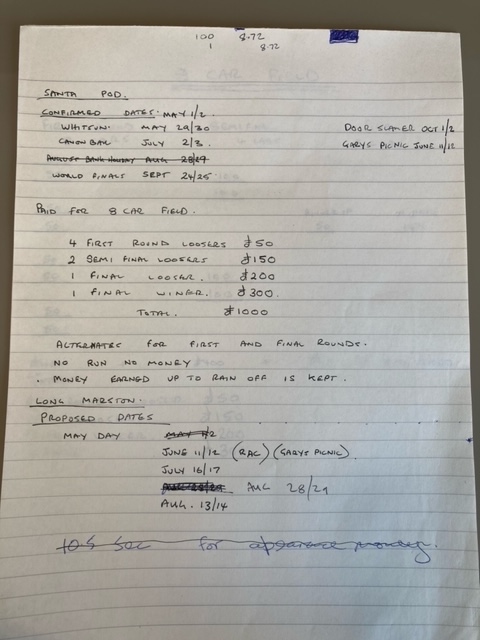 100 8.72
1 8.72
SANTA POD.
CONFIRMED DATES: MAY 1/2.
WHITSUN: MAY 29/30 DOOR SLAMER OCT 1/2
CANONBALL JULY 2/3. GARYS PICNIC JUNE 11/12
AUGUST BANK HOLIDAY AUG 28/29
WORLD FINALS SEPT 24/25
PAID FOR 8 CAR FIELD.
4 FIRST ROUND LOOSERS £50
2 SEMI FINAL LOOSERS £150
1 FINAL LOOSER. £200
1 FINAL WINER. £300.
TOTAL. £1000
ALTERNATES FOR FIRST AND FINAL ROUNDS.
NO RUN NO MONEY
. MONEY EARNED UP TO RAIN OFF IS KEPT.
LONG MARSTON.
PROPOSED DATES
MAY DAY MAY 1/2
JUNE 11/12 (RAC) (GARYS PICNIC)
JULY 16/17
AUG 28/29
AUG. 13/14
10.5 sec for apearance money.